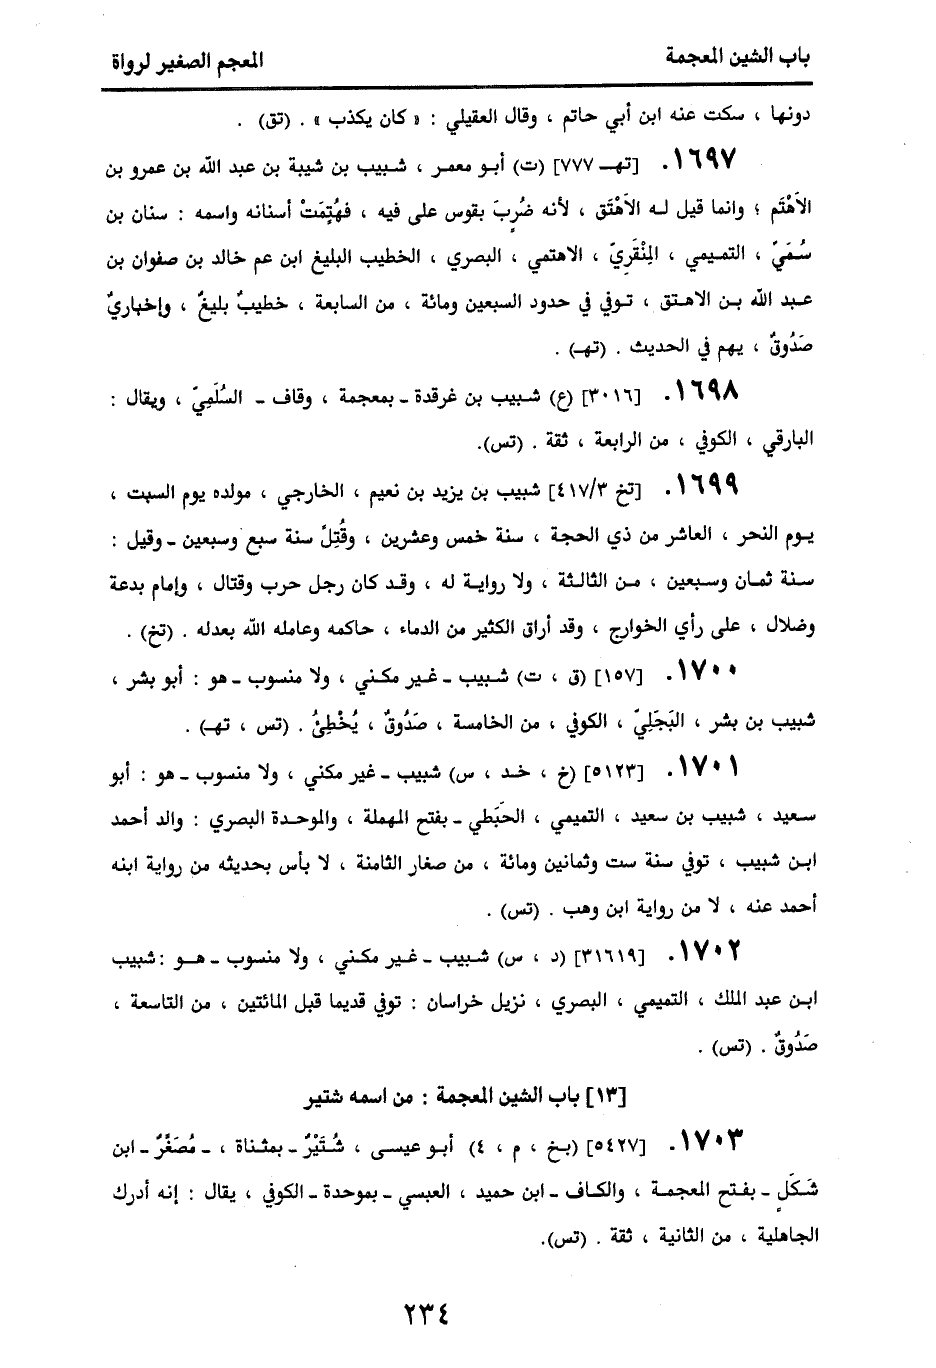 باب الشين المعجمة
المعجم الصغير لرواة
دونها ، سكت عنه ابن أبي حاتم ، وقال العقيلي : « كان يكذب » . (تق) .
١٦٩٧. [تهـ ٧٧٧] (ت) أبو معمر ، شبيب بن شيبة بن عبد الله بن عمرو بن
الأَهْتَم ؛ وانما قيل له الأَهْتَق ، لأنه ضُرِبَ بقوس على فيه ، فهُتِمَتْ أسنانه واسمه : سنان بن
سُمَيّ ، التميمي ، المِنْقَرِيّ ، الاهتمي ، البصري ، الخطيب البليغ ابن عم خالد بن صفوان بن
عبد الله بن الاهتق ، توفي في حدود السبعين ومائة ، من السابعة ، خطيبٌ بليغٌ ، وإخباريٌ
صَدُوقٌ ، يهم في الحديث . (تهـ) .
١٦٩٨. [٣٠١٦] (ع) شبيب بن غرقدة ـ بمعجمة ، وقاف ـ السُلَمِيّ ، ويقال :
البارقي ، الكوفي ، من الرابعة ، ثقة . (تس).
١٦٩٩. [تخ ٤١٧/٣] شبيب بن يزيد بن نعيم ، الخارجي ، مولده يوم السبت ،
يوم النحر ، العاشر من ذي الحجة ، سنة خمس وعشرين ، وقُتِلَ سنة سبع وسبعين ـ وقيل :
سنة ثمان وسبعين ، من الثالثة ، ولا رواية له ، وقد كان رجل حرب وقتال ، وإمام بدعة
وضلال ، على رأي الخوارج ، وقد أراق الكثير من الدماء ، حاكمه وعامله الله بعدله . (تخ) .
١٧٠٠. [١٥٧] (ق ، ت) شبيب ـ غير مكني ، ولا منسوب ـ هو : أبو بشر ،
شبيب بن بشر ، البَجَلِيّ ، الكوفي ، من الخامسة ، صَدُوقٌ ، يُخْطِئُ . (تس ، تهـ) .
١٧٠١. [٥١٢٣] (خ ، خد ، س) شبيب ـ غير مكني ، ولا منسوب ـ هو : أبو
سعيد ، شبيب بن سعيد ، التميمي ، الحَبَطي ـ بفتح المهملة ، والموحدة البصري : والد أحمد
ابن شبيب ، توفي سنة ست وثمانين ومائة ، من صغار الثامنة ، لا بأس بحديثه من رواية ابنه
أحمد عنه ، لا من رواية ابن وهب . (تس) .
١٧٠٢. [٣١٦١٩] (د ، س) شبيب ـ غير مكني ، ولا منسوب ـ هو : شبيب
ابن عبد الملك ، التميمي ، البصري ، نزيل خراسان : توفي قديما قبل المائتين ، من التاسعة ،
صَدُوقٌ . (تس) .
[١٣] باب الشين المعجمة : من اسمه شتير
١٧٠٣. [٥٤٢٧] (بخ ، م ، ٤) أبو عيسى ، شُتَيْرٌ ـ بمثناة ، ـ مُصَغَّرٌ ـ ابن
شَكَلٍ ـ بفتح المعجمة ، والكاف ـ ابن حميد ، العبسي ـ بموحدة ـ الكوفي ، يقال : إنه أدرك
الجاهلية ، من الثانية ، ثقة . (تس).
٢٣٤